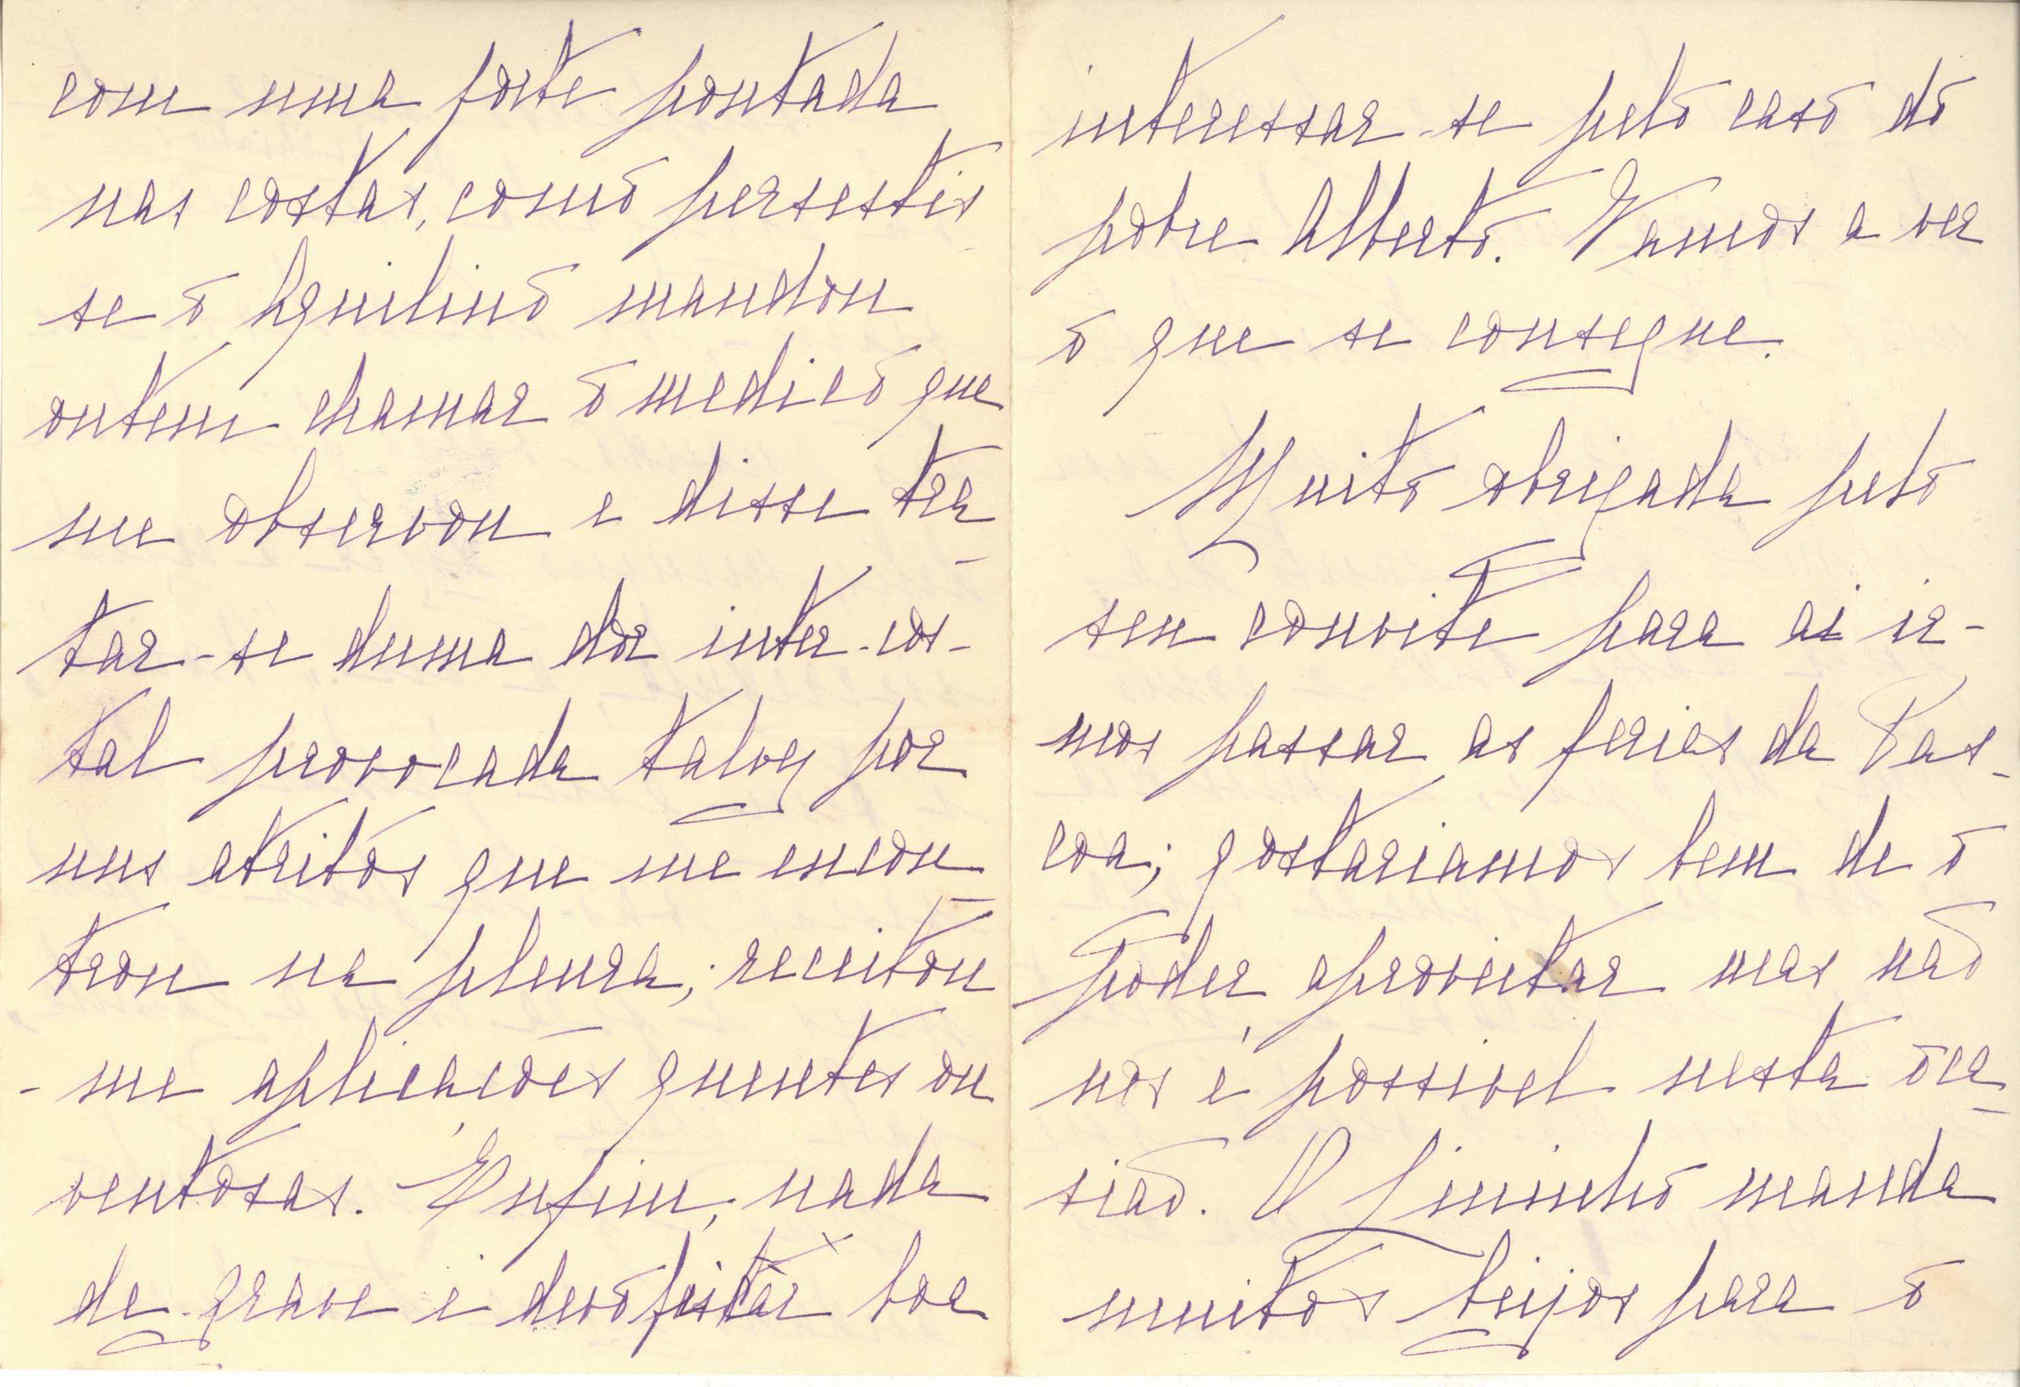 com uma forte pontada
nas costas, como persestis
se o Aquilino mandou
ontem chamar o medico que
me observou e disse tra
tar-se duma dôr inter-cos-
tal provocada talvez por
uns atritos que me encon-
trou na pleura; receitou
-me aplicações quentes ou
ventosas. Enfim, nada
de grave e devo ficar boa
interessar-se pelo caso do
pobre Alberto. Vamos a ver
o que se consegue.
Muito obrigada pelo
seu convite para ai ir-
mos passar as ferias da Pas-
coa; gostariamos bem de o
poder aproveitar mas não
nos é possivel nesta oca-
sião. O Lininho manda
muitos beijos para o